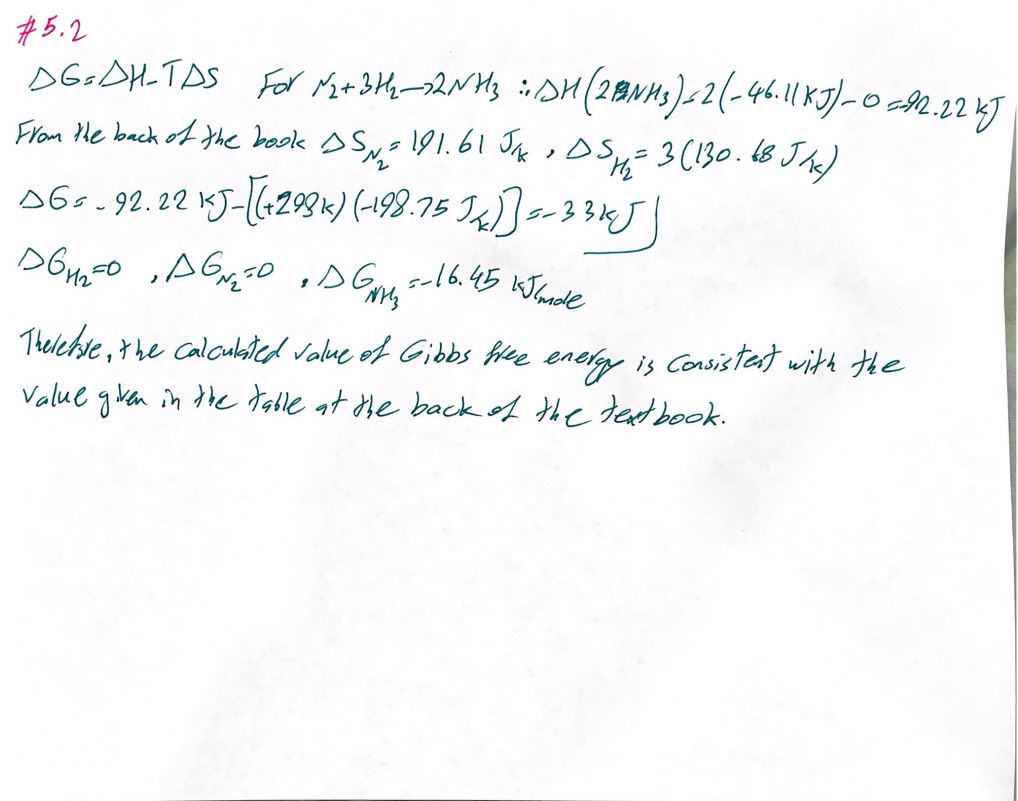 #5.2
ΔG=ΔH-TΔS For N₂+3H₂→2NH₃ ∴ ΔH(2NH₃)=2(-46.11KJ)-0=-92.22 kJ
From the back of the book ΔS_N₂=191.61 J/k, ΔS_H₂=3(130.68 J/k)
ΔG=-92.22 kJ-[(+298k)(-198.75 J/k)]=-33kJ
ΔG_H₂=0, ΔG_N₂=0, ΔG_NH₃=-16.45 kJ/mole
Therefore, the calculated value of Gibbs free energy is consistent with the
value given in the table at the back of the textbook.